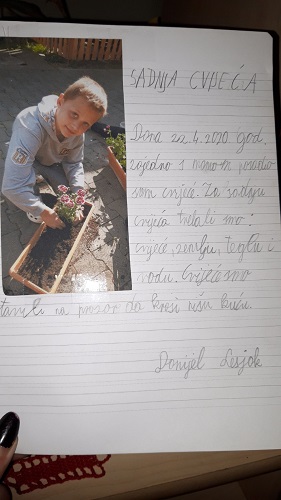 SADNJA CVIJEĆA
Dana 22.4.2020 god.
zajedno s mamom posadio
sam cvijeće. Za sadnju
cvijeća trebali smo:
cvijeće, zemlju, teglu i
vodu. Cvijeće smo
stavili na prozor da krasi našu kuću.
Danijel Lesjak